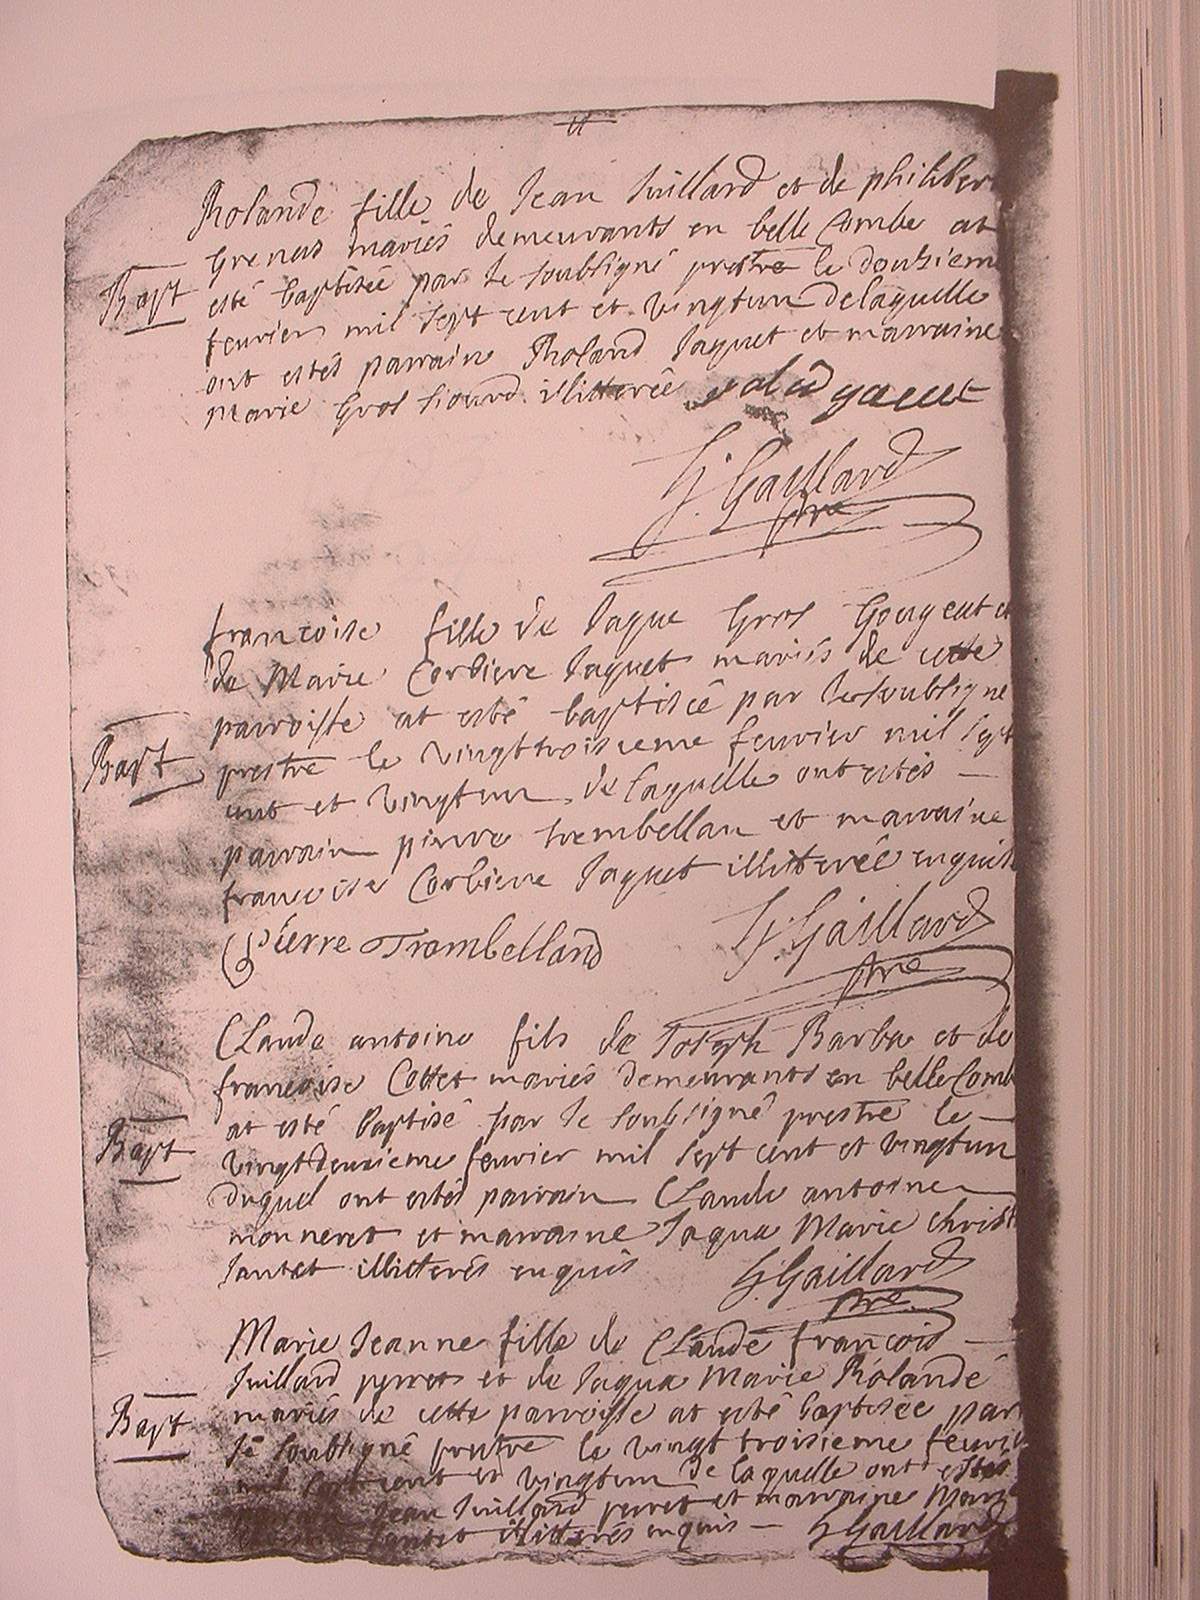 Rolande fille de Jean Juillard et de philiber
Grenas mariés demeurants en belle Combe at
Bapt
esté baptisée par le soubsigné prestre le douzieme
feuvrier mil sept cent et vingtun delaquelle
ont estés parrain Roland Jaquet et marraine
Marie Gros Siourd illitterée
G. Gaillard
pre
francoise fille de Jaque Gros Gourgeut et
de Marie Corbiere Jaquet mariés de cette
parroisse at esté baptiseé par le soubsigne
Bapt
prestre le vingttroisieme feuvrier mil sept
cent et vingtun de laquelle ont estés
parrain pierre trembellan et marraine
francoise Corbiere Jaquet illitereé enquise
Pierre Trambelland
G. Gaillard
pre
Claude antoine fils de Joseph Barba et de
francoise Cottet mariés demeurants en belle Comb
at esté baptisé par le soubsigné prestre le
Bapt
vingtdeuxieme feuvrier mil sept cent et vingtun
duquel ont estés parrain Claude antoine
monneret et marraine Jaqua Marie christ
Jantet illitterés enquis
G. Gaillard
pre
Marie Jeanne fille de Claude francois
Juillard perret et de Jaqua Marie Rolande
Bapt
mariés de cette parroisse at esté baptisée par
le soubsigné prestre le vingt troisieme feuvrie
mil sept cent et vingtun de laquelle ont estes
Jean Juillard perret et marraine Marie
Jantet illitterés enquis G Gaillard